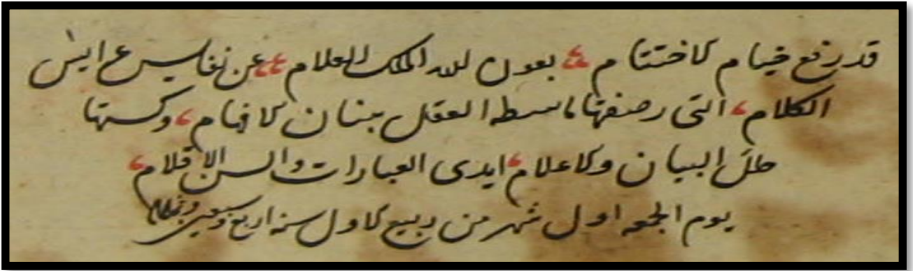 قد رفع خيام الاختتام بعون لله الملك العلام عن نفايس عرايس
الكلام التى رصفتها ماشطه العقل ببنان الافهام وكستها
حلل البيان والاعلام ايدى العبارات والسن الاقلام
يوم الجمعه اول شهر من ربيع الاول سنه اربع وسبعين